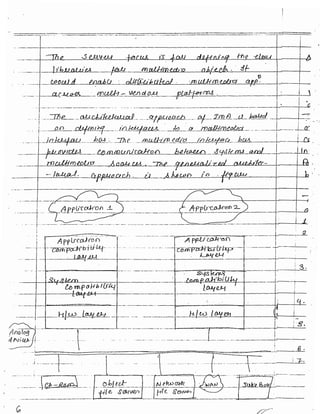 The Servers focus is for defining the class
libraries for multimedia object. It
would enable distributed multimedia appⁿ
across multi-vendor platforms
The architectural approach of IMA is based
on defining interfaces to a multimedia
interface bus. The multimedia interface bus
provides communication between systems and
multimedia Sources. The generalized architec-
tural approach is shown in figure
Application 1
Application 2
Application
compatibility
Layer
Application
compatibility
Layer
System
compatibility
layer
System
compatibility
layer
H/w layer
H/w layer
Analog
devices
CD-ROM
object
file server
Network
file server
WAN
Juke Box
6